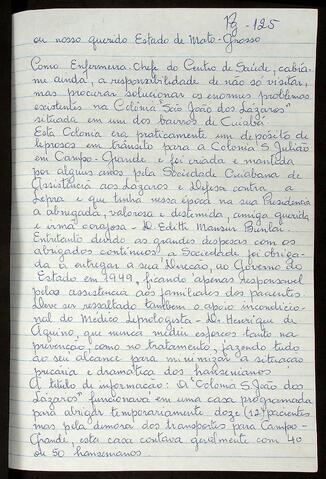 Pg - 125
ou nosso querido Estado de Mato-Grosso
Como Enfermeira-Chefe do Centro de Saúde, cabia-
me ainda, a responsabilidade de não só visitar,
mas procurar solucionar os enormes problemas
existentes na Colônia "São João dos Lázaros"
situada em um dos bairros de Cuiabá.
Esta Colonia era praticamente um depósito de
leprosos em trânsito para a Colonia S. Julião
em Campo-Grande e foi criada e mantida
por alguns anos pela Sociedade Cuiabana de
Assistência aos Lázaros e Defesa contra a
Lepra e que tinha nessa época na sua Presidência
a abnegada, valorosa e destemida, amiga querida
e irmã corajosa - D. Edith Mansur
Entretanto devido as grandes despesas com os
abrigados contínuos a Sociedade foi obriga-
da à entregar a sua Direção, ao Governo do
Estado em 1949, ficando apenas responsável
pelas assistência aos familiares dos pacientes.
Deve ser ressaltado também o apoio incondicio-
nal do Médico Leprologista - Dr. Henrique de
Aquino, que nunca mediu esforços tanto na
prevenção, como no tratamento, fazendo tudo
ao seu alcance para minimizar a situação
precária e dramática dos hansenianos.
A título de informação: A "Colonia S. João dos
Lázaros" funcionava em uma casa programada
para abrigar temporariamente doze (12) pacientes
mas pela demora dos transportes para Campo-
Grande, esta casa contava geralmente com 40
ou 50 hansenianos.